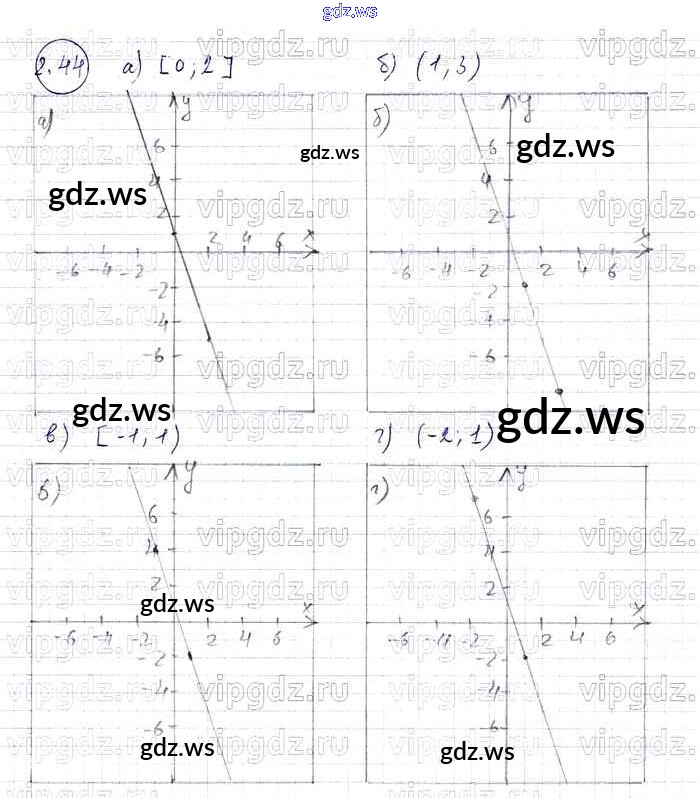 gdz.ws
2.44 а) [0; 2] б) (1, 3)
а) y 6 4 2 2 4 6 x -6 -4 -2 -2 -4 -6
б) y 6 4 2 2 4 6 -6 -4 -2 -2 -4 -6
в) [-1, 1) г) (-2; 1)
в) y 6 4 2 2 4 6 x -6 -4 -2 -2 -4 -6
г) y 6 4 2 2 4 6 x -6 -4 -2 -2 -4 -6
gdz.ws
gdz.ws
gdz.ws
gdz.ws
gdz.ws
gdz.ws
gdz.ws
gdz.ws
vipgdz.ru